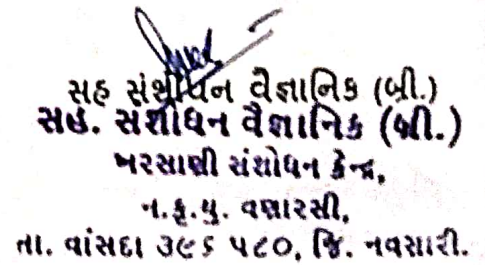 સહ સંશોધન વૈજ્ઞાનિક (બી.)
સહ. સંશોધન વૈજ્ઞાનિક (બી.)
ખરસાણી સંશોધન કેન્દ્ર,
ન.કૃ.યુ. વણારસી,
તા. વાંસદા ૩૯૬ ૫૮૦, જિ. નવસારી.